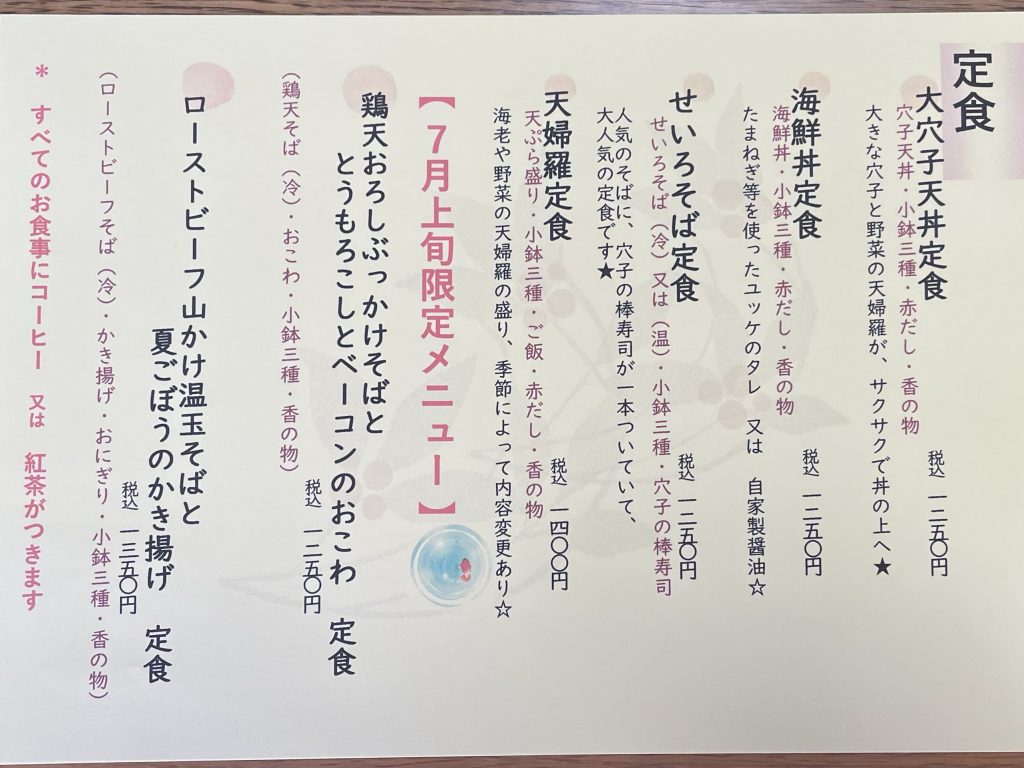 定食
大穴子天丼定食
穴子天丼・小鉢三種・赤だし・香の物
税込 一二五〇円
大きな穴子と野菜の天婦羅が、サクサクで丼の上へ★
海鮮丼定食
海鮮丼・小鉢三種・赤だし・香の物
税込 一二五〇円
たまねぎ等を使ったユッケのタレ 又は 自家製醤油☆
せいろそば定食
せいろそば（冷）又は（温）・小鉢三種・穴子の棒寿司
税込 一二五〇円
人気のそばに、穴子の棒寿司が一本ついていて、
大人気の定食です★
天婦羅定食
天ぷら盛り・小鉢三種・ご飯・赤だし・香の物
税込 一四〇〇円
海老や野菜の天婦羅の盛り、季節によって内容変更あり☆
【７月上旬限定メニュー】
鶏天おろしぶっかけそばと
とうもろこしとベーコンのおこわ 定食
税込 一二五〇円
（鶏天そば（冷）・おこわ・小鉢三種・香の物）
ローストビーフ山かけ温玉そばと
夏ごぼうのかき揚げ 定食
税込 一三五〇円
（ローストビーフそば（冷）・かき揚げ・おにぎり・小鉢三種・香の物）
＊ すべてのお食事にコーヒー 又は 紅茶がつきます